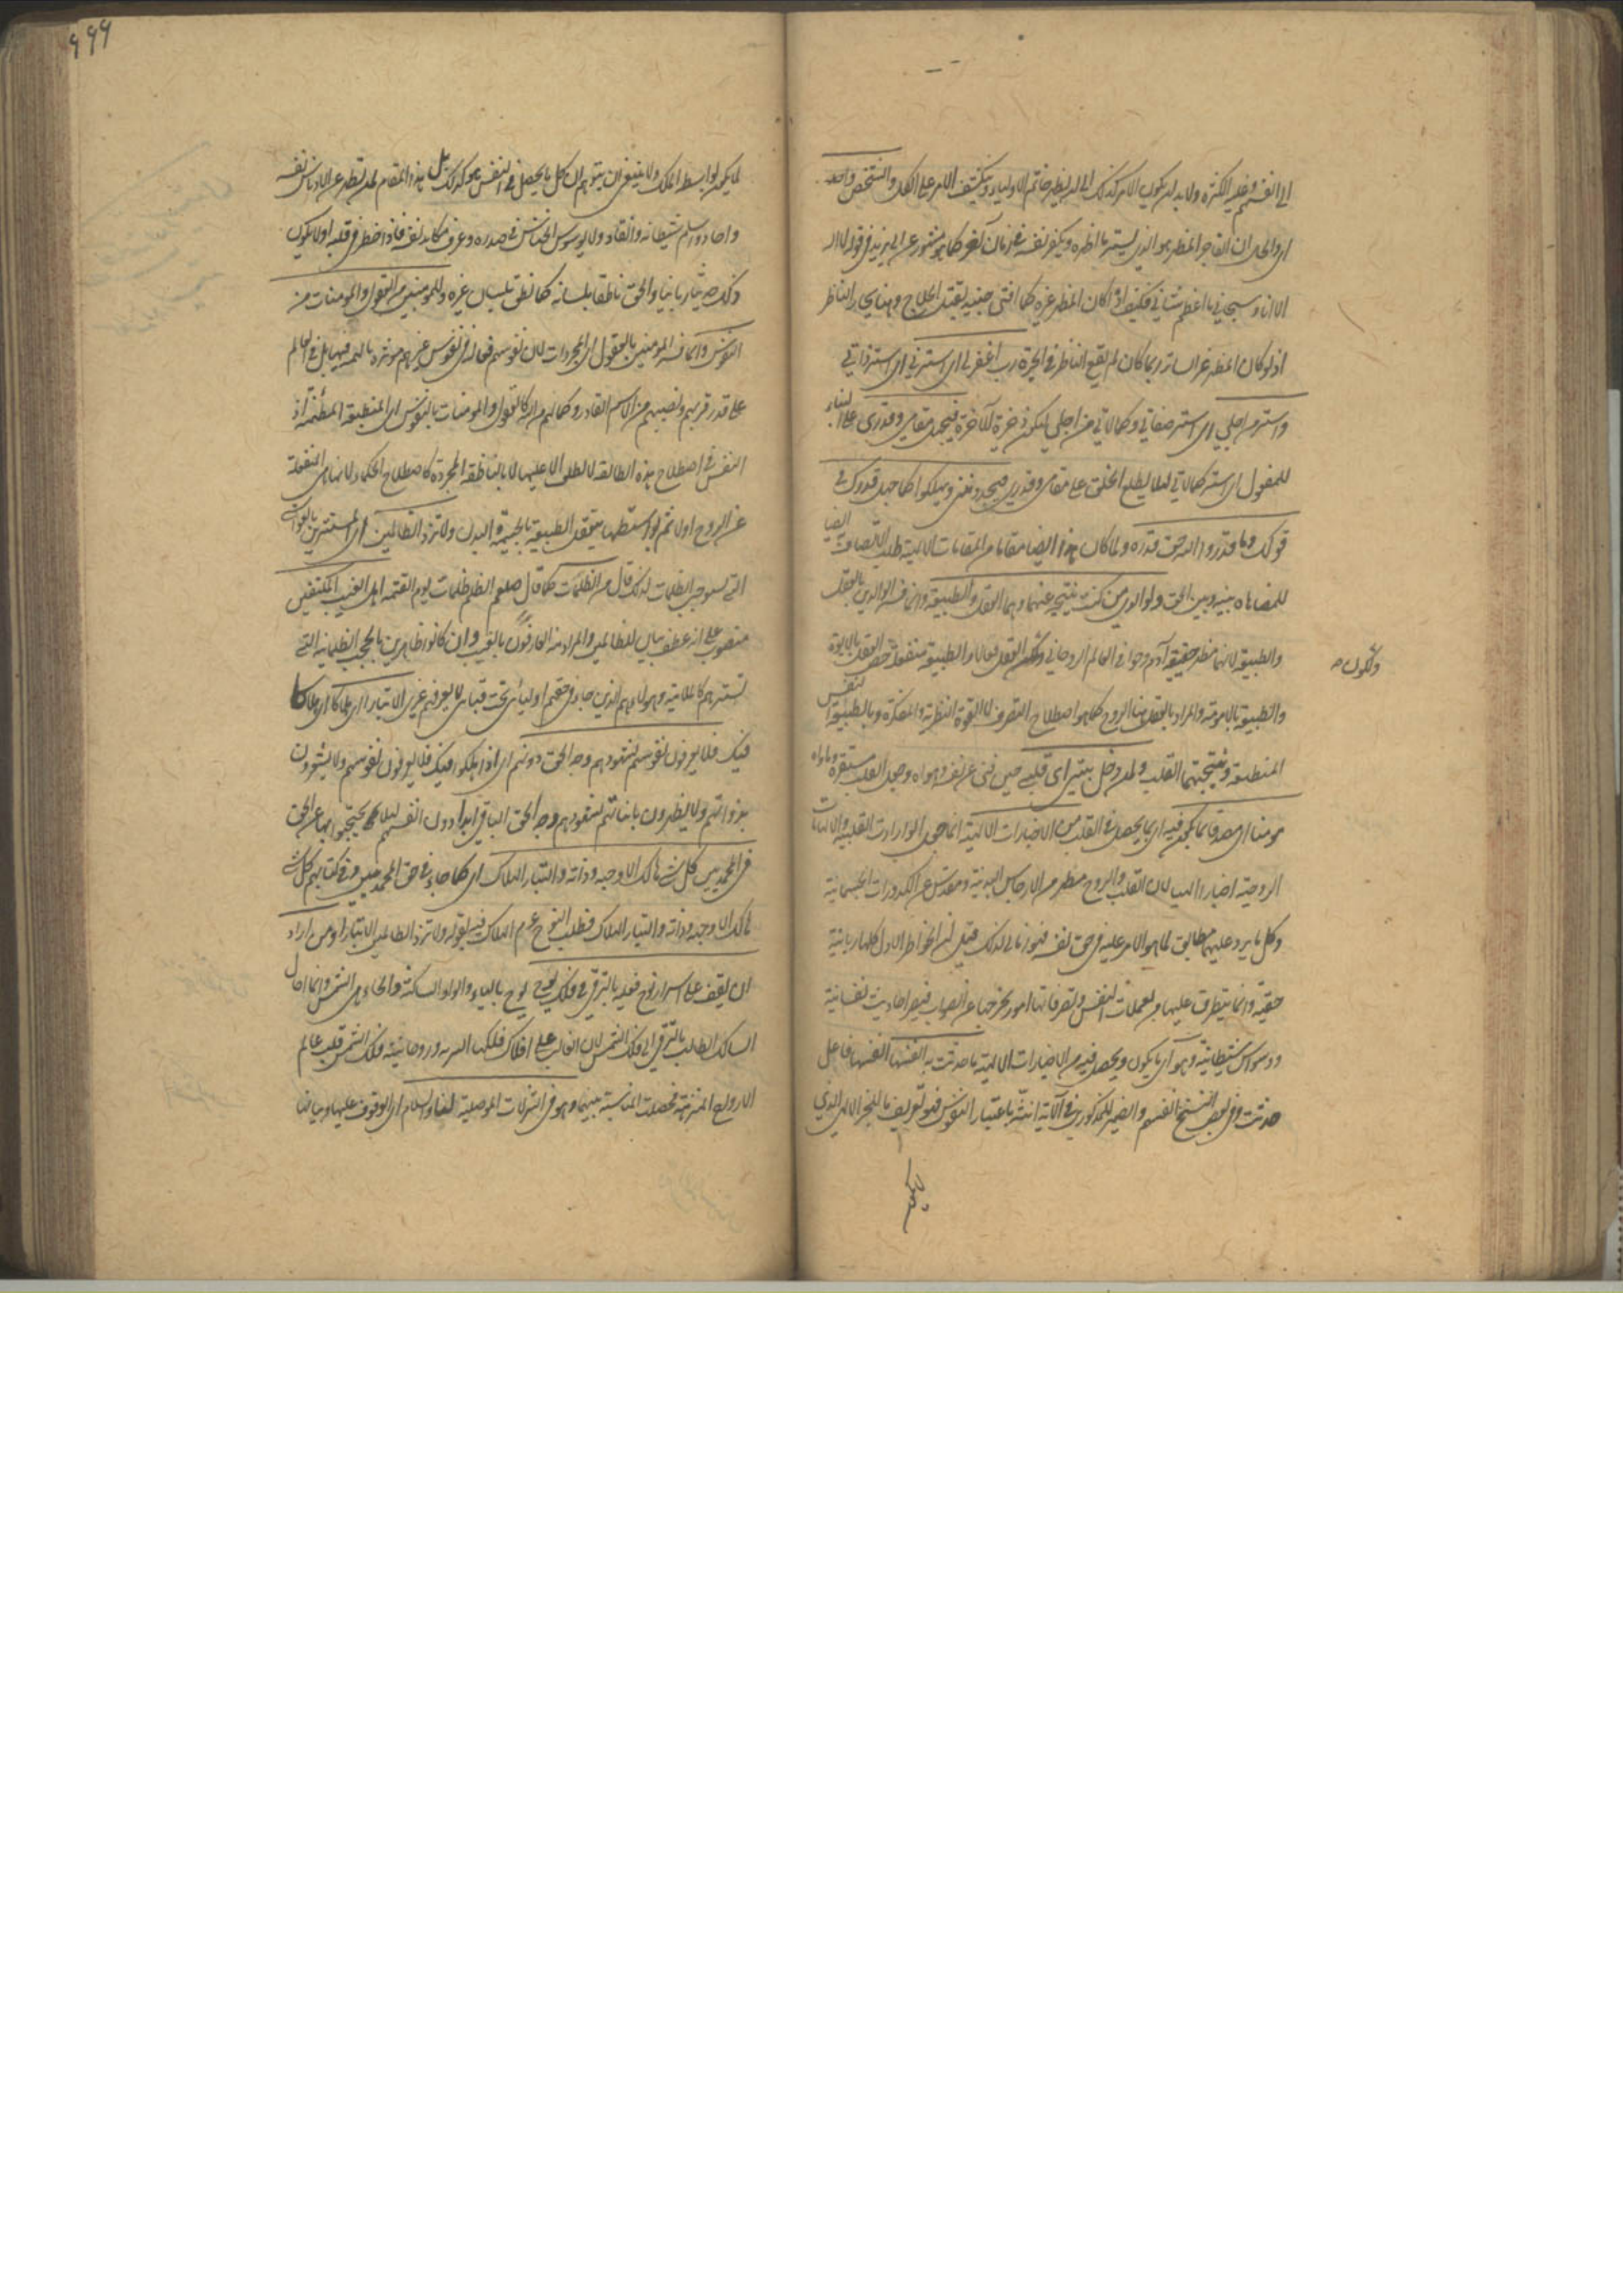 الى انفسهم وفيه الكثرة ولا بد ان يكون الامر كذلك الى ان يظهر خاتم الاولياء وينكشف الامر على الكل والشخص واحد
اى والحال ان الفاجر المظهر هو الذى يستر ما اظهره ويكفر نفسه فى زمان آخر كما هو مشهور عن ابى يزيد فى قوله لا اله
الا انا وسبحانى ما اعظم شانى فكيف اذا كان المظهر غيره كما افتى جنيد بقتل الحلاج وهنا يحار الناظر
اذ لو كان المظهر غير الساتر ربما كان لم يقع الناظر فى الحيرة رب اغفر لى اى استرنى اى استر ذاتى
واستر من اجلى اى استر صفاتى وكمالاتى من اجلى ليكن ذخيرة للآخرة فيجهل مقامى وقدرى على البناء
للمفعول اى استر كمالاتى لئلا يطلع الخلق على مقامى وقدرى فيحسدوننى ويهلكوا كما جهل قدرك فى
قولك وما قدروا الله حق قدره ولما كان هذا ايضا مقاما من المقامات الالهية طلب الاتصاف ايضا
للمضاهاة بينه وبين الحق ولوالدى من كنت نتيجة عنهما وهما العقل والطبيعة وانما فسر الوالدين بالعقل
والطبيعة لانهما مظهر حقيقة آدم وحوا فى العالم الروحانى ولكون العقل فعالا والطبيعة منفعلة خص العقل بالابوة
ولكون صح
والطبيعة بالامومة والمراد بالعقل هنا الروح كما هو اصطلاح التصوف لا القوة النظرية والمفكرة وبالطبيعة النفس
المنطبعة ونتيجتهما القلب ولمن دخل بيتى اى قلبى حين فنى عن نفسه وهواه وجعل القلب مستقره وماواه
مومنا اى مصدقا بما يكون فيه اى بما يحصل فى القلب من الاخبارات الالهية انما جعل الواردات القلبية والالهامات
الروحية اخبارا الهية لان القلب والروح مطهر من الارجاس البدنية ومقدس عن الكدورات الجسمانية
وكل ما يرد عليهما مطابق لما هو الامر عليه فى حق نفسه فهو ربانى لذلك قيل ان الخواطر الاول كلها ربانية
حقية وانما يتطرق عليها من تعملات النفس وتصرفاتها امور تخرجها عن الصواب فتصير احاديث نفسانية
ووسواس شيطانية وهو اى ما يكون ويحصل فيه من الاخبارات الالهية ما حدثت به انفسها انفسها فاعل
حدثت وفى بعض النسخ انفسهم والضمير المذكور فى الآية انثه باعتبار النفوس فهو تعريف بالخبر الالهى الذى
لا يكون
۶۹۹
لا يكون بواسطة الملك ولا ينبغى ان يتوهم ان كل ما يحصل فى النفس هو كذلك بل هذا المقام لمن تطهر عن الادناس نفسه
واصابه واسلم شيطانه وانقاد ولا يوسوس الخناس فى صدره وعرف مكايد نفسه فاذا خطر فى قلبه اولا يكون
ذلك حديثا ربانيا والحق ناطقا بلسانه كما نطق بلسان غيره وللمومنين من العقول والمومنات من
النفوس وانما فسر المومنين بالعقول اى المجردات لان نفوسهم فعالة فى نفوس غيرهم موثرة بالهمة فيها بل فى العالم
على قدر قربهم ونصيبهم من الاسم القادر وكمالهم من الله كالعقول والمومنات بالنفوس اى المنطبعة المطمئنة اذ
النفس فى اصطلاح هذه الطائفة لا تطلق الا عليها لا بالناطقة المجردة كاصطلاح الحكماء لانها هى المنفعلة
عن الروح اولا ثم بواسطتها ينفعل الطبيعة الجسمية البدن ولا تزد الظالمين اى المستترين بالغواشى
التى توجب الظلمات لذلك قال من الظلمات كما قال صلعم الظلم ظلمات يوم القيمة اهل الغيب المكتنفين
منصوب على انه عطف بيان للظالمين والمراد منه العارفون بالغيب وان كانوا ظاهرين بالحجب الظلمانية التى
تسترهم كالملامتية وهولاء هم الذين جاء فى حقهم اوليائى تحت قبابى لا يعرفهم غيرى الا تبارا اى هلاكا اى هلاكا
فيك فلا يعرفون نفوسهم لشهودهم وجه الحق دونهم اى اذا هلكوا فيك فلا يعرفون نفوسهم ولا يشعرون
بذواتهم ولا يظهرون بانيّاتهم لشهودهم وجه الحق الباقى ابدا دون انفسهم لئلا يحتجبوا بها عن الحق
فى المحمديين كل شىء هالك الا وجهه وذاته والتبار الهلاك اى كما جاء فى حق المحمديين وفى كتابهم كل شىء
هالك الا وجهه وذاته والتبار الهلاك فطلب النوح عم الهلاك فيه بقوله ولا تزد الظالمين الا تبارا ومن اراد
ان يقف على اسرار نوح فعليه بالترقى فى فلك يوح يوح بالياء والواو الساكنة والحاء هى الشمس وانما احال
السالك الطالب بالترقى الى فلك الشمس لان الغالب على افلاك فلكها السر به وروحانية فلك الشمس قلب عالم
الارواح المنزهة فحصلت المناسبة بينهما وهو فى التنزلات الموصلية لنا والسلام اى الوقوف عليها وبياننا